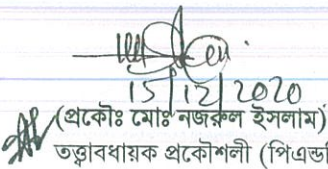 15/12/2020
(প্রকৌঃ মোঃ নজরুল ইসলাম)
তত্ত্বাবধায়ক প্রকৌশলী (পিএন্ড